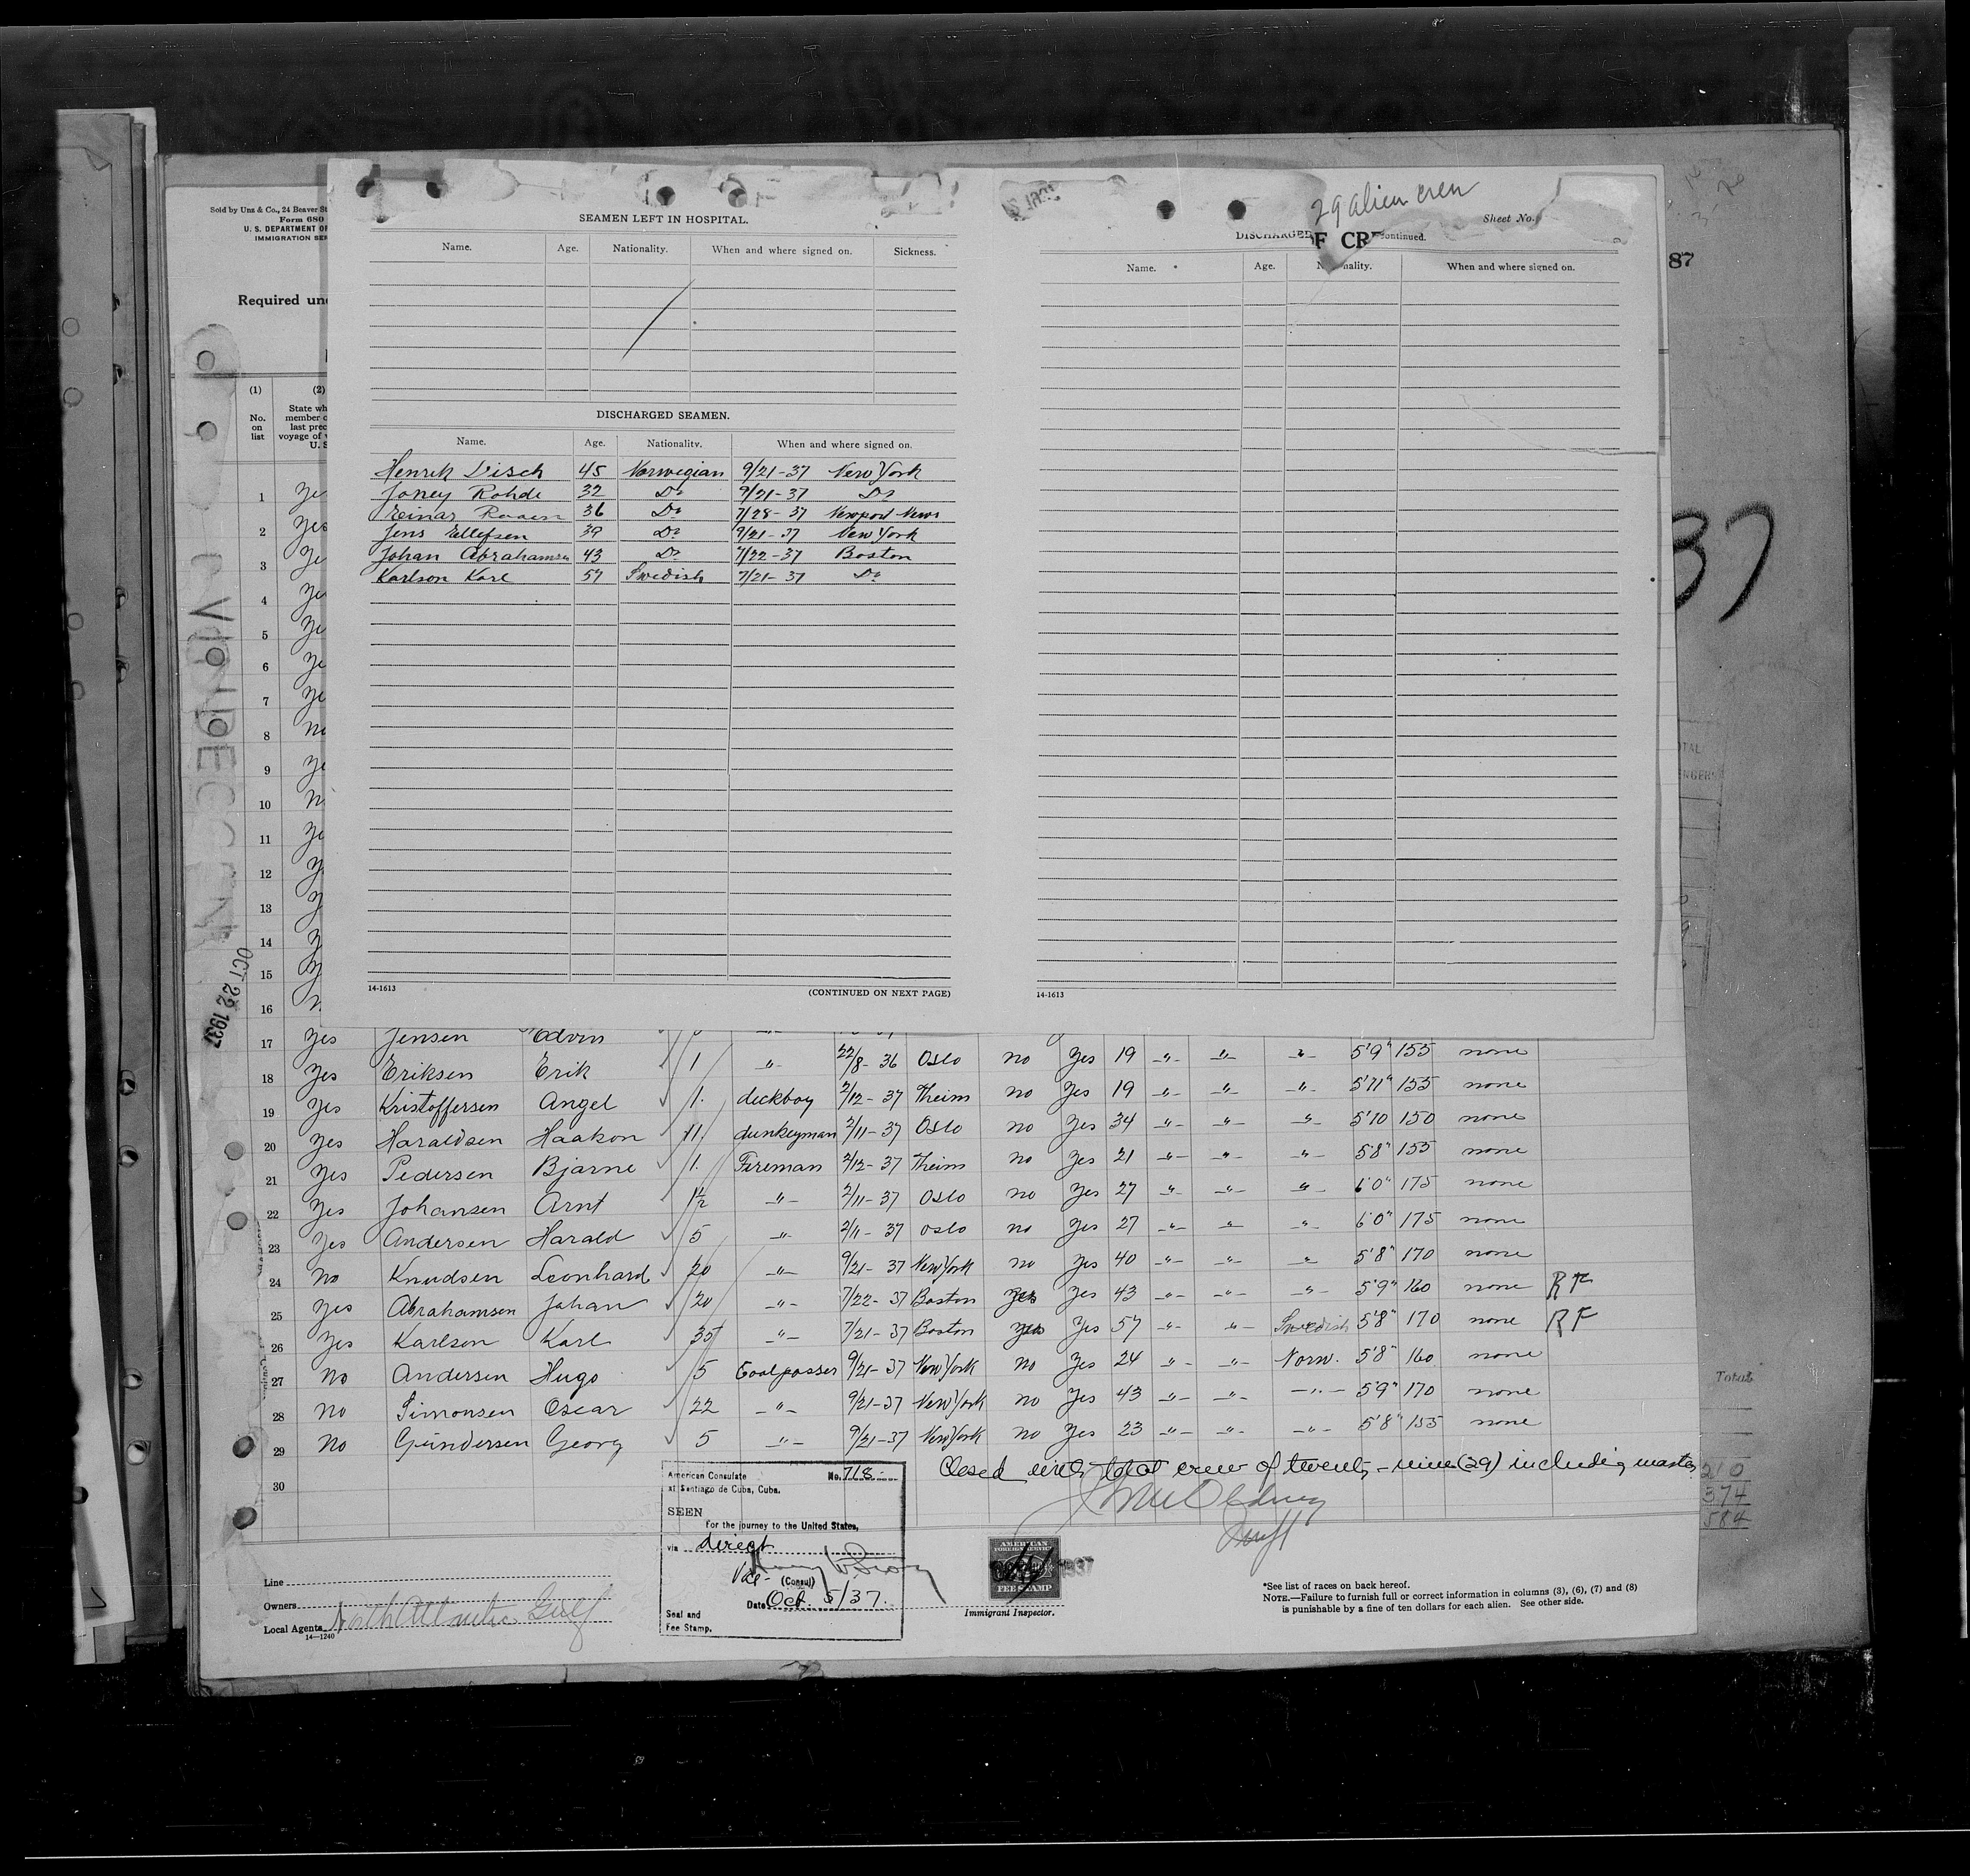 Sold by Unz & Co., 24 Beaver St
Form 680
U. S. DEPARTMENT OF
IMMIGRATION SER
Required und
(1) (2)
No. on list
State wh
member o
last prec
voyage of
U. S
29 alien crew
Sheet No.
SEAMEN LEFT IN HOSPITAL.
Name. Age. Nationality. When and where signed on. Sickness.
DISCHARGED SEAMEN.
Name. Age. Nationality. When and where signed on.
Henrik 45 Norwegian 9/21-37 New York
Rohde 32 Do 9/21-37 Do
Einar 36 Do 7/28-37 Newport News
Jens Ellefsen 39 Do 9/21-37 New York
Johan Abrahamsen 43 Do 7/22-37 Boston
Karlson Karl 57 Swedish 7/21-37 Do
14-1613
(CONTINUED ON NEXT PAGE)
DISCHARGED
F CR
ontinued.
Name. Age. Nationality. When and where signed on.
14-1613
87
37
OCT 22 1937
1 Ye
2 Yes
3 Ye
4 Ye
5 Ye
6 Ye
7 Ye
8 No
9 Ye
10 N
11 Ye
12 Y
13 Y
14 Y
15 Y
16 N
17 Yes Jensen Edvin
18 Yes Eriksen Erik 1 -"- 22/8-36 Oslo no Yes 19 -"- -"- -"- 5'9" 155 none
19 Yes Kristoffersen Angel 1. deckboy 2/12-37 Theim no Yes 19 -"- -"- -"- 5'11" 155 none
20 Yes Haraldsen Haakon 11. dunkeyman 2/11-37 Oslo no Yes 34 -"- -"- -"- 5'10 150 none
21 Yes Pedersen Bjarne 1. Fireman 2/12-37 Theim no Yes 21 -"- -"- -"- 5'8" 155 none
22 Yes Johansen Arnt 1½ -"- 2/11-37 Oslo no Yes 27 -"- -"- -"- 6'0" 175 none
23 Yes Andersen Harald 5 -"- 2/11-37 Oslo no Yes 27 -"- -"- -"- 6'0" 175 none
24 No Knudsen Leonhard 20 -"- 9/21-37 New York no Yes 40 -"- -"- -"- 5'8" 170 none
25 Yes Abrahamsen Johan 20 -"- 7/22-37 Boston Yes Yes 43 -"- -"- -"- 5'9" 160 none RF
26 Yes Karlson Karl 35 -"- 7/21-37 Boston Yes Yes 57 -"- -"- Swedish 5'8" 170 none RF
27 No Andersen Hugo 5 Coalpasser 9/21-37 New York no Yes 24 -"- -"- Norw. 5'8" 160 none
28 No Simonsen Oscar 22 -"- 9/21-37 New York no Yes 43 -"- -"- -"- 5'9" 170 none
29 No Gundersen Georg 5 -"- 9/21-37 New York no Yes 23 -"- -"- -"- 5'8" 155 none
30
Closed with total crew of twenty-nine (29) including master
American Consulate No. 718
at Santiago de Cuba, Cuba.
SEEN
For the journey to the United States,
via direct
Vice-
(Consul)
Date Oct. 5/37.
Seal and
Fee Stamp.
AMERICAN
FOREIGN SERVICE
FEE STAMP
Immigrant Inspector.
Line
Owners
Local Agents North Atlantic Gulf
14-1240
*See list of races on back hereof.
NOTE.—Failure to furnish full or correct information in columns (3), (6), (7) and (8)
is punishable by a fine of ten dollars for each alien. See other side.
Total
210
374
584